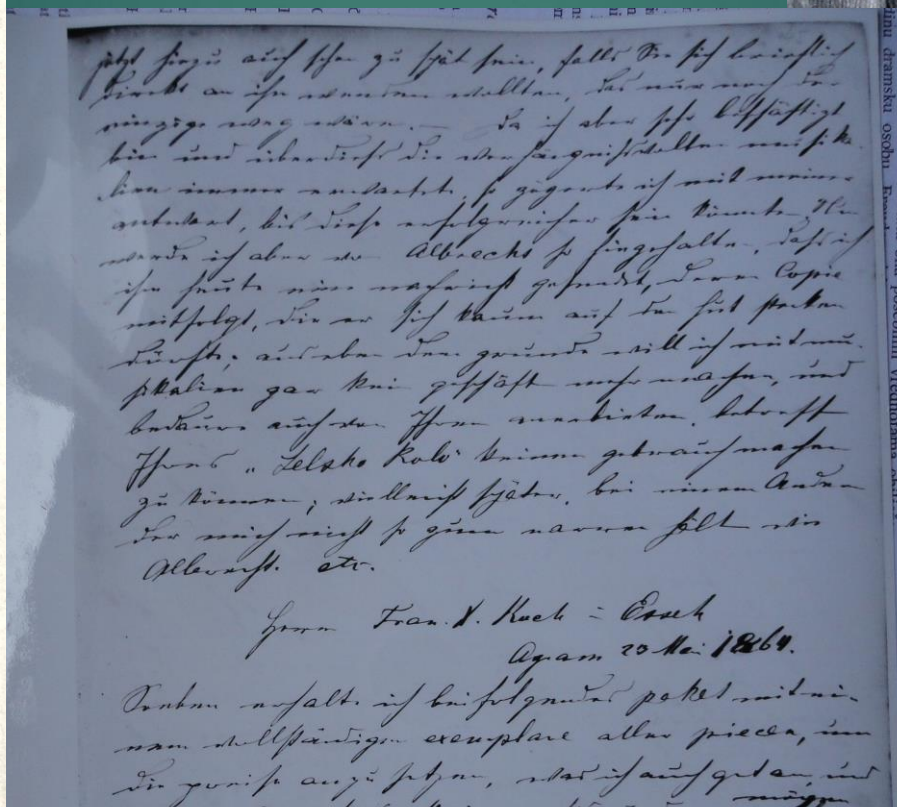 jetzt hiezu auch schon zu spät sein, falls Sie sich brieflich
direkt an ihn wenden wollten, das nur noch der
einzige weg wäre. — Da ich aber sehr beschäftigt
bin und überdiess die verhängnissvollen musika-
lien immer erwartete, so zögerte ich mit meiner
antwort, bis diese erfolgreicher sein könnte. Nun
werde ich aber von Albrecht so hingehalten, dass ich
ihm heute eine nachricht gesendet, deren Copie
mitfolgt, die er sich kaum auf den hut stecken
dürfte; aus eben dem grunde will ich mit mu-
sikalien gar kein geschäft mehr machen, und
bedaure auch von Ihrem anerbieten, betreff
Ihres „Zelsko Kolo“ keinen gebrauch machen
zu können; vielleicht später, bei einem Andern
der mich nicht so zum narren hält wie
Albrecht. etc.
Herrn Fran. X. Kuch = Essek
Agram 23 Mai 1864.
Soeben erhalte ich beifolgendes paket mit ei-
nem vollständigen exemplare aller piecen, um
die preise anzusetzen, was ich auch getan, und
mögen
dinu dramsku osobu